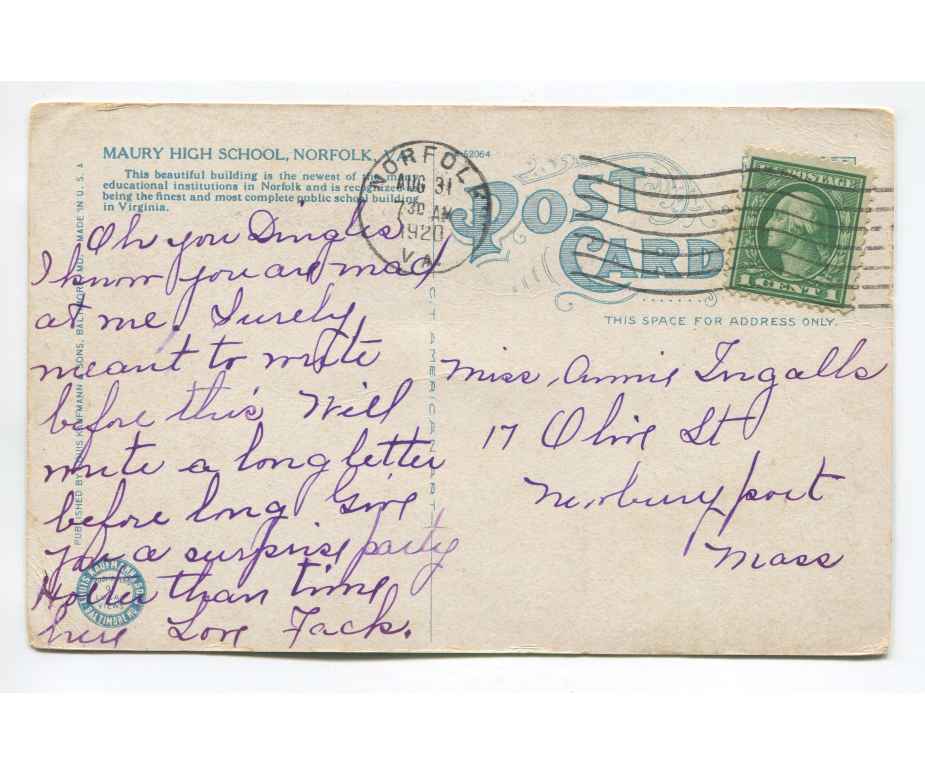 MAURY HIGH SCHOOL, NORFOLK, VA.
52064
This beautiful building is the newest of the many
educational institutions in Norfolk and is recognized as
being the finest and most complete public school building
in Virginia.
NORFOLK
AUG 31
7 30 AM
1920
VA.
POST
CARD
U.S. POSTAGE
1 CENT 1
THIS SPACE FOR ADDRESS ONLY.
Oh you Dingles
I know you are mad
at me. Surely
meant to write
before this. Will
write a long letter
before long Give
you a surprise party
Hotter than time
here Love Jack.
Miss Annie Ingalls
17 Olive St
Newburyport
Mass
PUBLISHED BY LOUIS KAUFMANN & SONS, BALTIMORE, MD. MADE IN U.S.A
LOUIS KAUFMANN & SONS
BALTIMORE MD.
C.T. AMERICAN ART